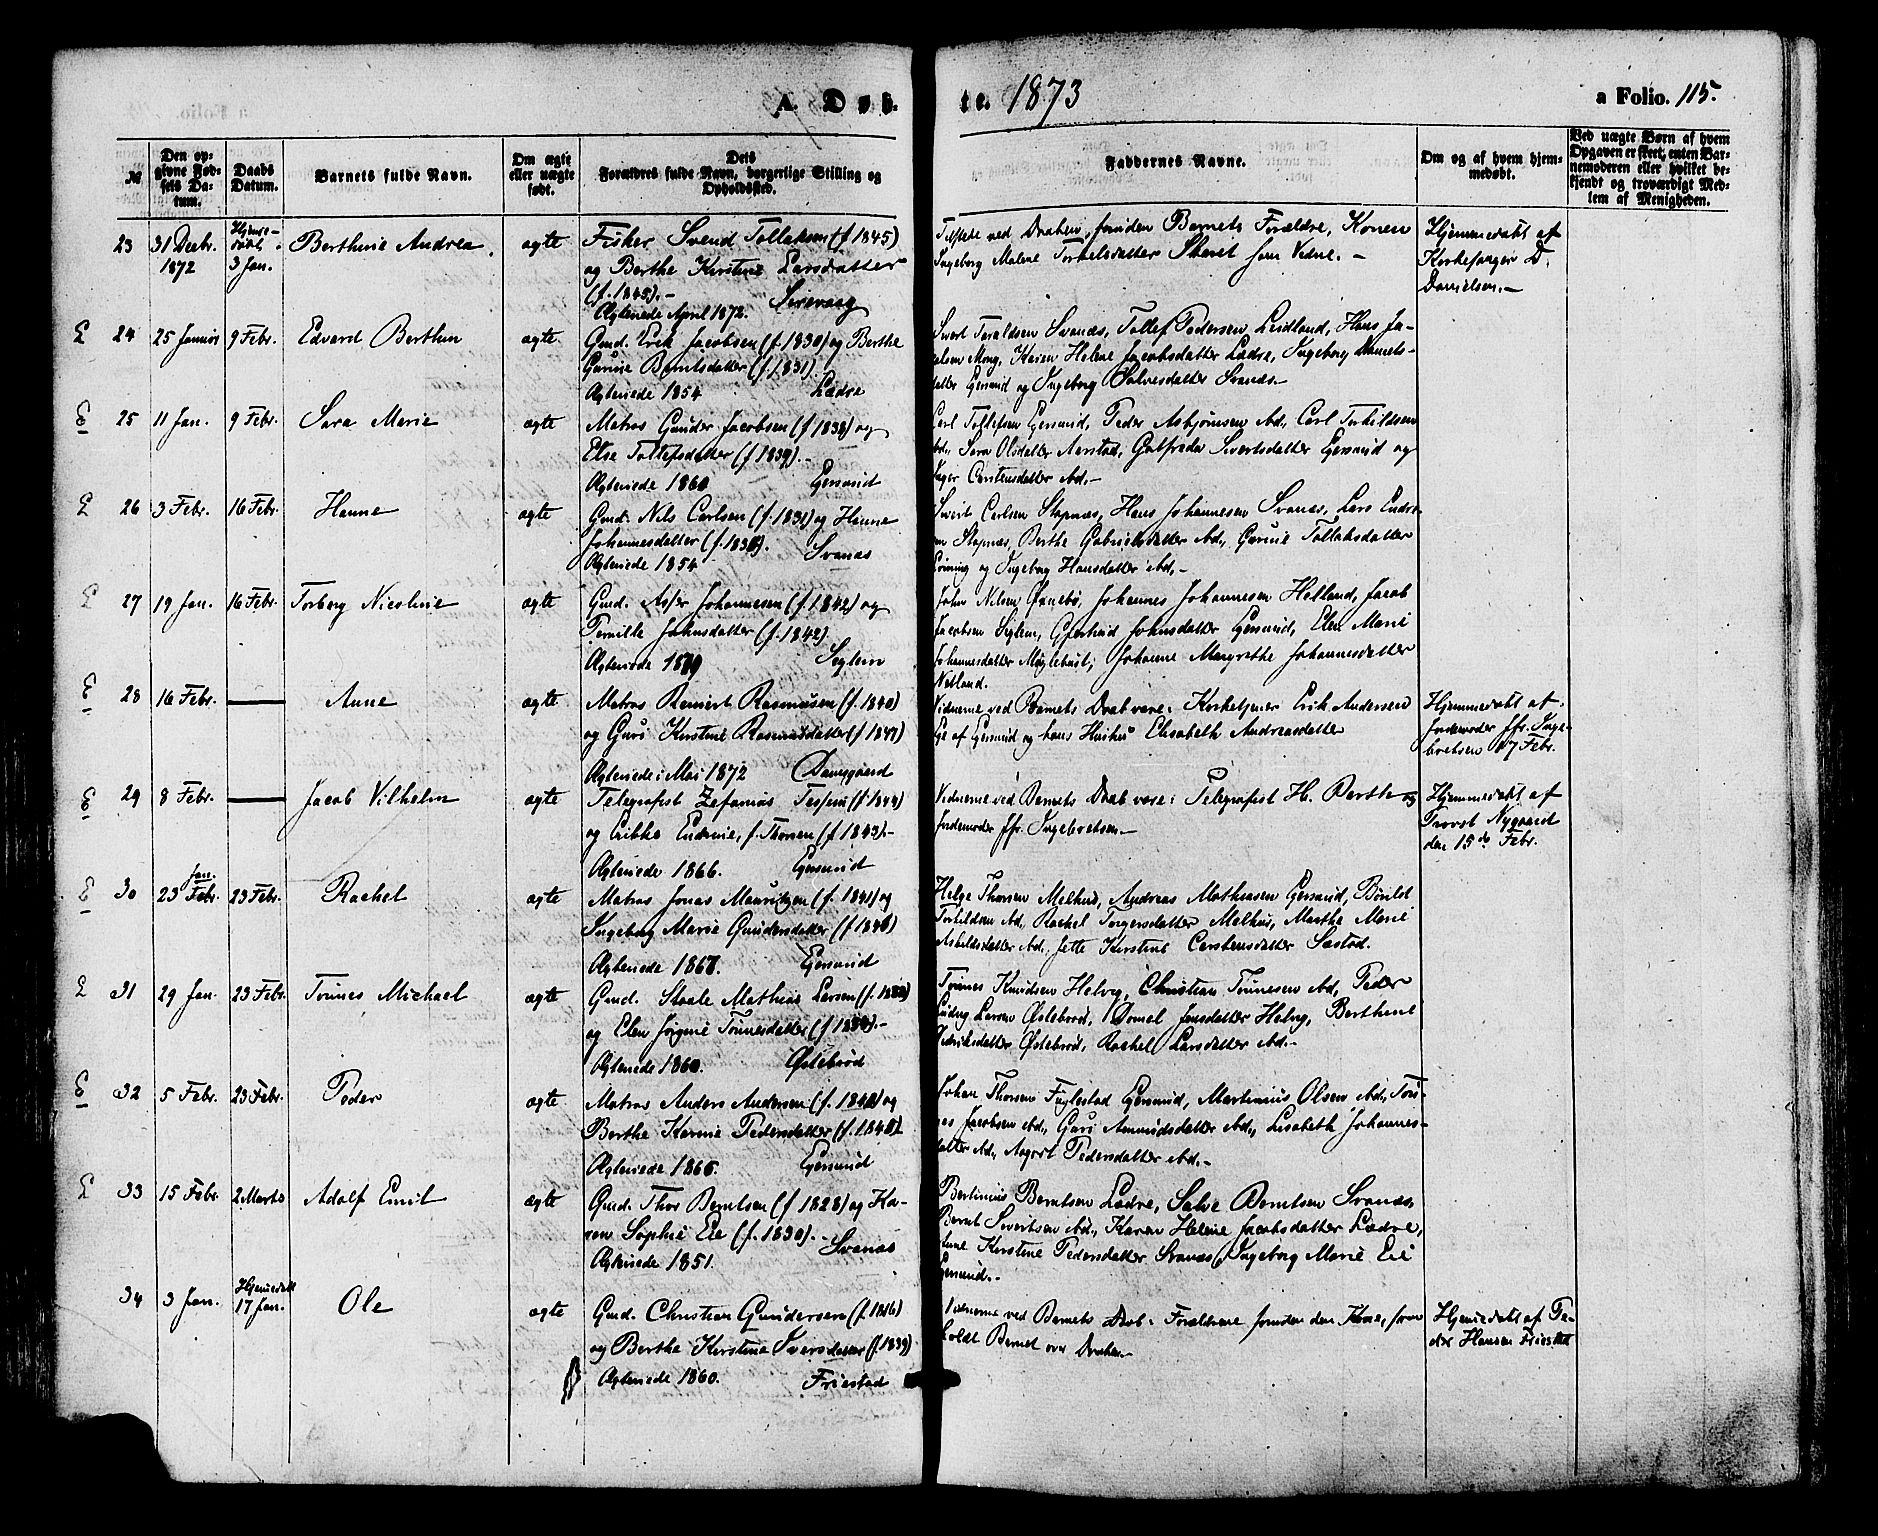 A. Døb-
te. 1873
a Folio. 115.
№
Den op-
givne Fød-
sels Da-
tum.
Daabs
Datum.
Barnets fulde Navn.
Om ægte
eller uægte
født.
Dets
Forældres fulde Navn, borgerlige Stilling og
Opholdssted.
Faddernes Navne.
Om og af hvem hjem-
medøbt.
Ved uægte Børn af hvem
Opgaven er skeet, enten Bar-
nemoderen eller hvilket be-
kjendt og troværdigt Med-
lem af Menigheden.
23 31 Decbr. 1872 Hjemme-
døbt 3 Jan. Berthine Andrea ægte Fisker Svend Tollaksen (f 1845)
og Berthe Kirstine Larsdatter
(f. 1845).- Sirevaag
Ægteviede April 1872.
Tilstede ved Daaben, foruden Barnets Forældre, Konen
Ingeborg Malene Torkelsdatter Skaret som Vidne.-
Hjemmedøbt af
Kirkesanger D.
Danielsen.-
E 24 25 Januar 9 Febr. Edvard Berthin ægte Gmd. Erik Jacobsen (f. 1830) og Berthe
Gurine Berntsdatter (f. 1831).
Ægteviede 1854 Ladre
Sivert Taraldsen Svanæs, Tollef Pedersen Leidland, Hans Ja-
Mong, Karen Helene Jacobsdatter Ladre, Ingeborg Daniels-
datter Egersund og Ingeborg Salvesdatter Svanæs.-
E 25 11 Jan. 9 Febr. Sara Marie ægte Matros Gunder Jacobsen (f 1838) og
Else Tollefsdatter (f 1839).-
Ægteviede 1860 Egersund
Carl Tollefsen Egersund, Peder Asbjørnsen ibd., Carl Torkildsen
ibd., Sara Olsdatter Aarstad, Gotfreda Sivertsdatter Egersund og
Inger Carstensdatter ibd.-
E 26 3 Febr. 16 Febr. Hanne ægte Gmd. Nils Carlsen (f. 1831) og Hanne
Johannesdatter (f. ). Svanæs
Ægteviede 1854
Sivert Carlsen Stapnæs, Hans Johannesen Svanæs, Lars Endre-
sen Stapnæs, Berthe Gabrielsdatter ibd., Gurine Tollaksdatter
og Ingeborg Hansdatter ibd.-
E 27 19 Jan. 16 Febr. Torborg Nicoline ægte Gmd. Asser Johannesen (f. 1842) og
Pernille Johnsdatter (f. 1842)
Ægteviede Seglem
John Nilsen Ønnebø, Johannes Johannesen Helland, Jacob
Jacobsen Seglem, Gjertrud Johnsdatter Egersund, Elen Marie
Johannesdatter Møglebust, Johanne Margrethe Johannesdatter
Netland.
E 28 16 Febr. — Anne ægte Matros Reinert Rasmusen (f. 1840)
og Guri Kirstine Rasmusdatter (f 1847)
Ægteviede i Mai 1872 Damsgaard
Vidnerne ved Barnets Daab vare: Kirketjener Erik Andersen
Eie af Egersund og hans Hustru Elisabeth Andreasdatter
Hjemmedøbt af
Jordemoder Jfr. Inge-
bretsen 17 Febr.
E 29 8 Febr. — Jacob Vilhelm ægte Telegrafist Zefanias (f 1844)
og Endrine, f. Thorsen (f. 1843).-
Ægteviede 1866. Egersund
Vidnerne ved Barnets Daab vare: Telegrafist H. Berthe og
Jordemoder Jfr. Ingebretsen.-
Hjemmedøbt af
Provst Nygaard
den 15de Febr.
E 30 23 Febr. Jan. 23 Febr. Rachel ægte Matros Jonas Mauritzen (f. 1841) og
Ingeborg Marie Gundersdatter (f )
Ægteviede Egersund
Helge Thorsen Melhus, Andreas Mathiasen Egersund, Bønild
Torkildsen ibd., Rachel Torgersdatter Melhus, Marthe Marie
Askildsdatter ibd., Jette Kirstine Carstensdatter Sæstad.
E 31 29 Jan. 23 Febr. Tønnes Michael ægte Gmd. Staale Mathias Larsen (f. )
og Elen Jørgine Tønnesdatter (f )-
Ægteviede 1860. Øslebrød
Tønnes Knudsen Helvig, Christian Tønnesen ibd, Peder
Ludvig Larsen Øslebrød, Dorthel Jensdatter Helvig, Berthine
Øslebrød, Rachel Larsdatter ibd.-
E 32 5 Febr. 23 Febr. Peder ægte Matros Anders Andersen (f. ) og
Berthe Karine Pedersdatter (f. )
Ægteviede 1866. Egersund
Johan Thorsen Fuglestad Egersund, Martinius Olsen ibd., Tøn-
nes Jacobsen ibd., Guri Amundsdatter ibd., Lisabeth Johannes-
datter ibd., Aagot Pedersdatter ibd.-
E 33 15 Febr. 2 Marts Adolf Emil ægte Gmd. Thor Berntsen (f 1828) og Ka-
ren Sophie Eie (f. 1830).- Svanæs
Ægteviede 1851.
Bertinius Berntsen Ladre, Salve Berntsen Svanæs,
Bernt Sivertsen ibd., Karen Helene Jacobsdatter Ladre,
Anne Kirstine Pedersdatter Svanæs, Ingeborg Marie Eie
Egersund.-
34 3 Jan. Hjemmedøbt
17 Jan. Ole ægte Gmd. Christian Gundersen (f. 1816)
og Berthe Kirstine Siversdatter (f. 1839)
Ægteviede 1860. Friestad
Vidnerne ved Barnets Daab: Forældrene foruden den Kone, som
holdt Barnet over Daaben.-
Hjemmedøbt af Pe-
der Hansen Friestad